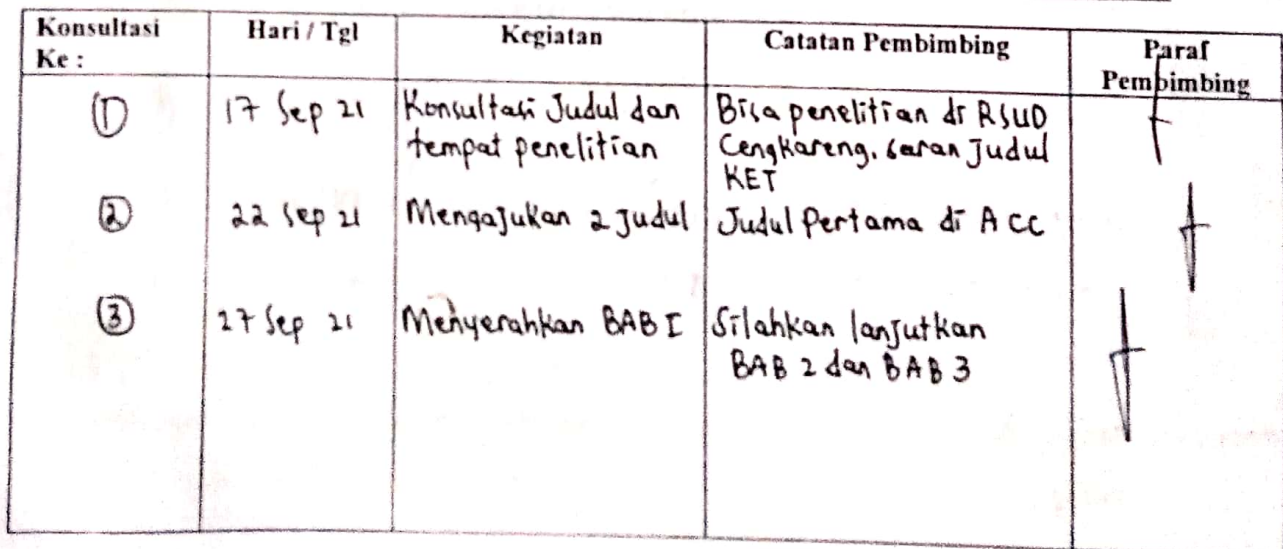 Konsultasi Ke :
Hari / Tgl
Kegiatan
Catatan Pembimbing
Paraf Pembimbing
1
17 Sep 21
Konsultasi Judul dan
tempat penelitian
Bisa penelitian di RSUD
Cengkareng, saran Judul
KET
2
22 Sep 21
Mengajukan 2 Judul
Judul Pertama di ACC
3
27 Sep 21
Menyerahkan BAB I
Silahkan lanjutkan
BAB 2 dan BAB 3